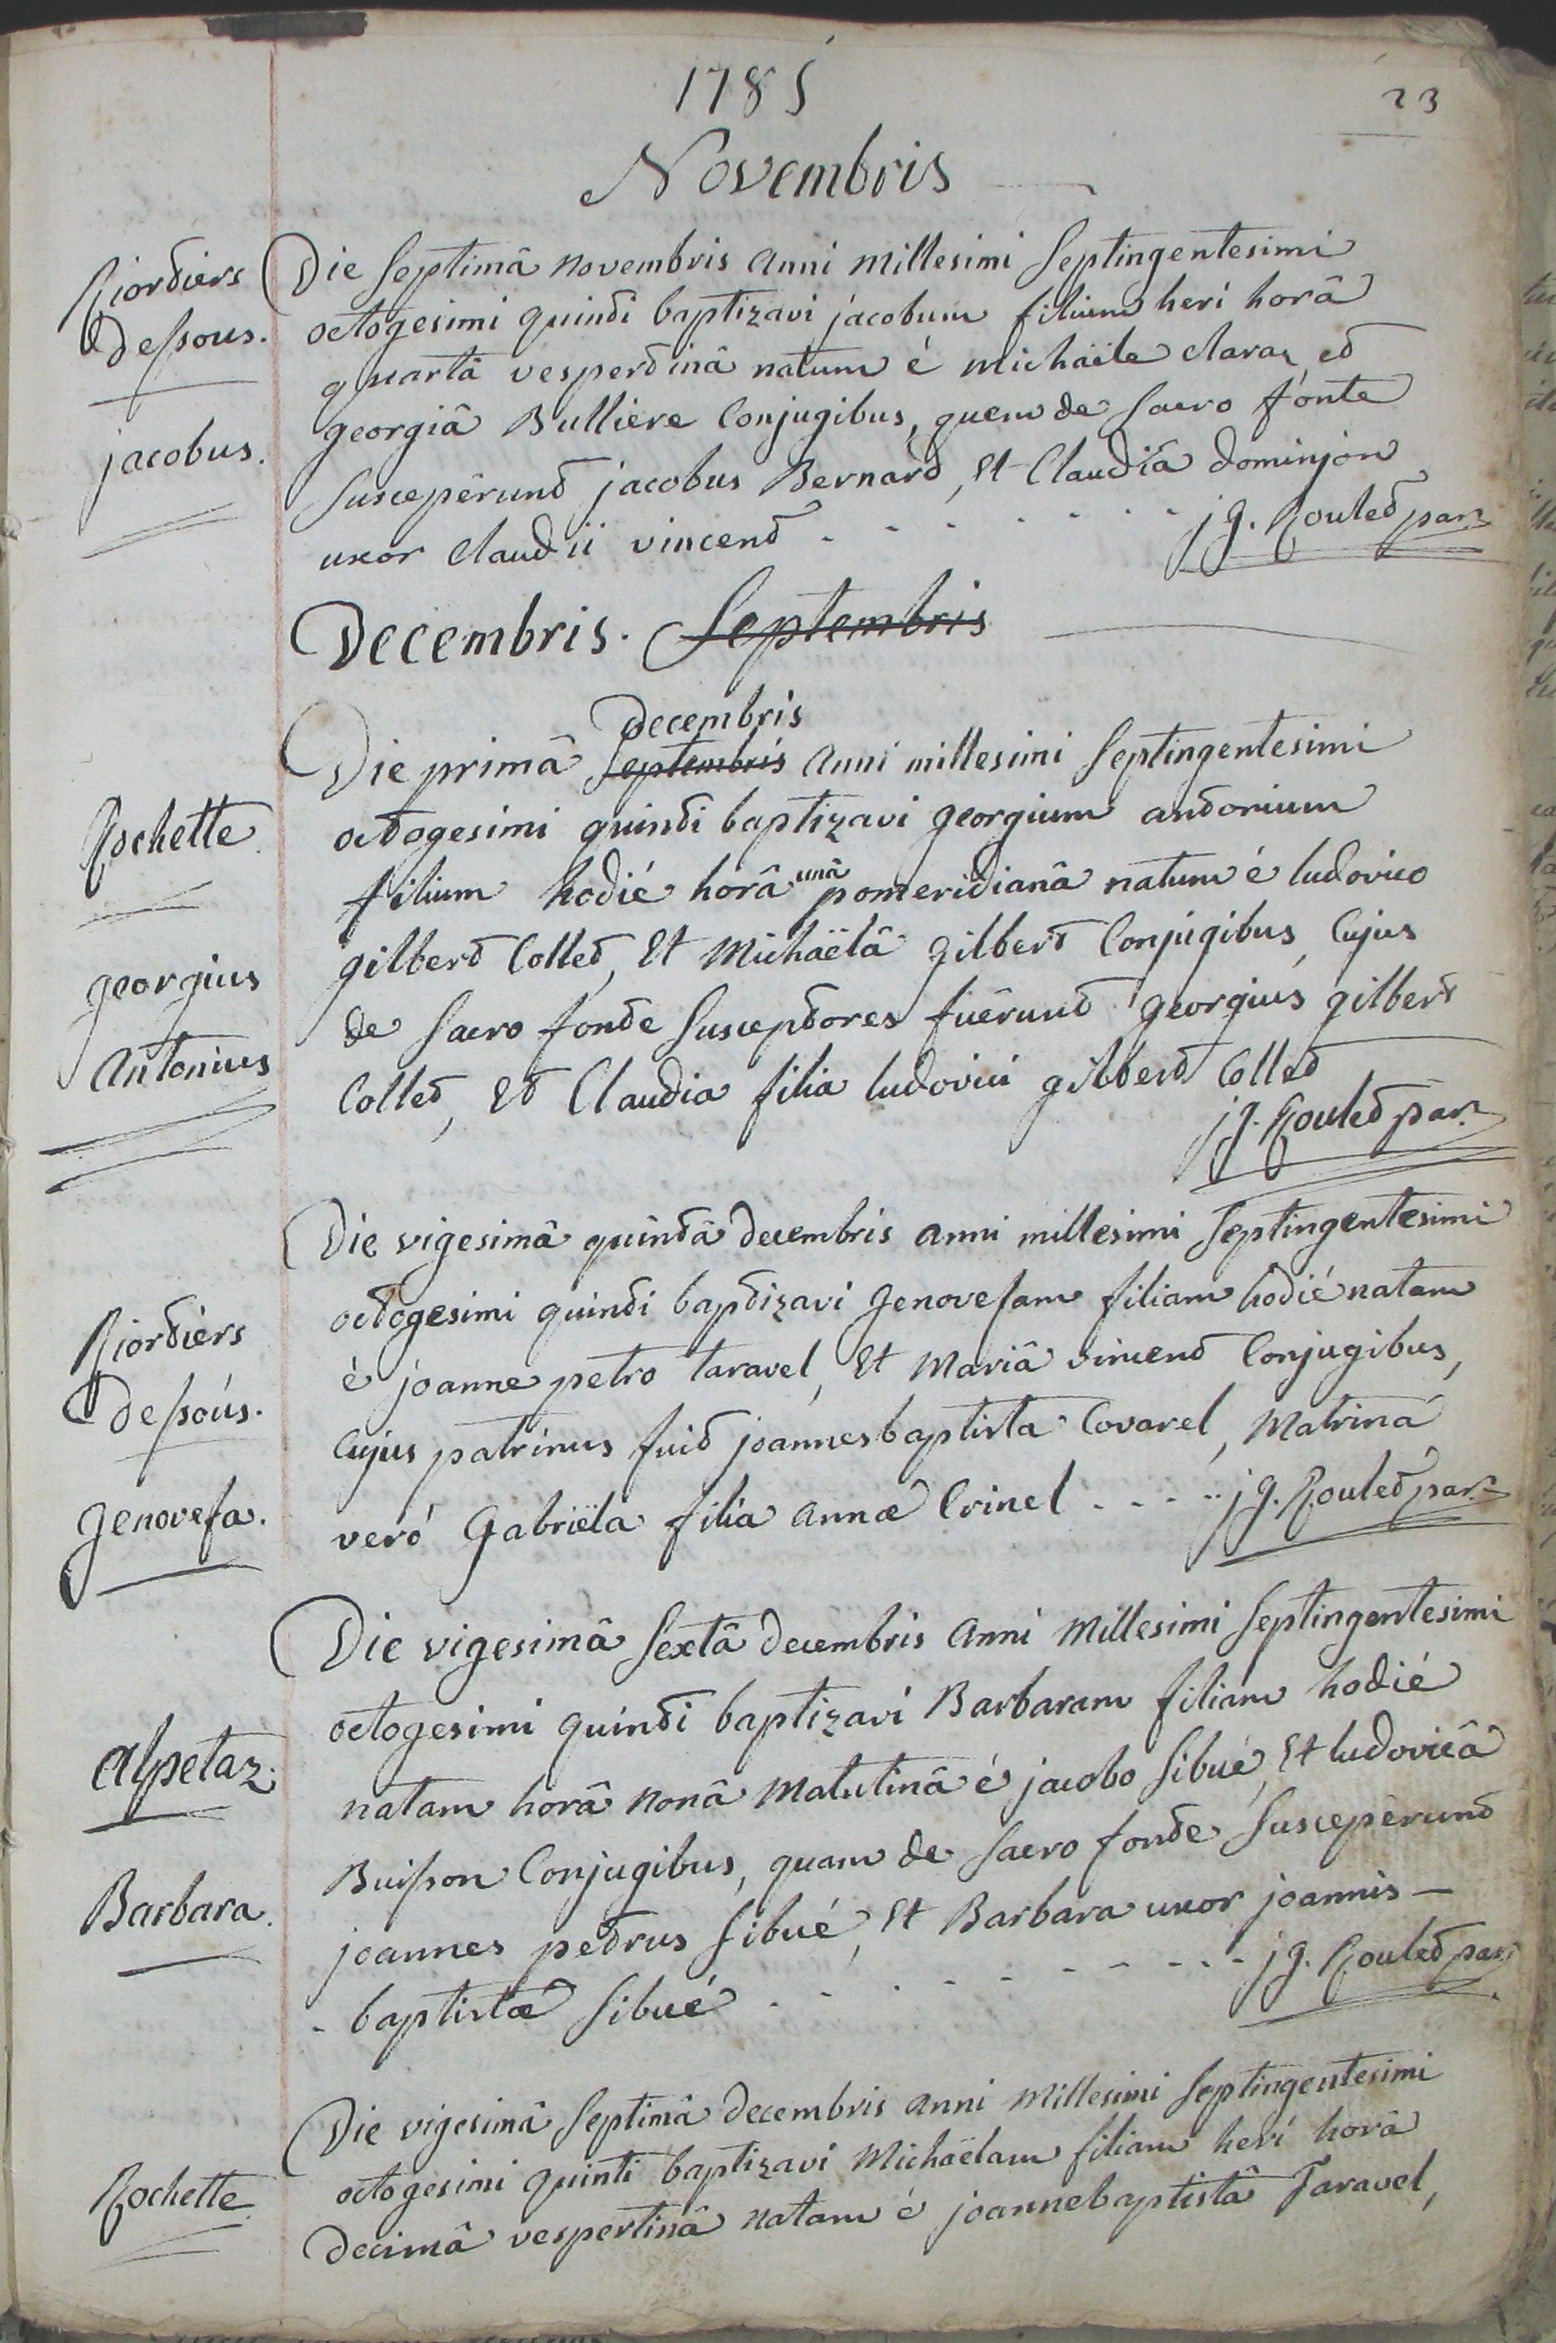 1785
23
Novembris
Riortiers
dessous.
jacobus.
Die septimâ novembris anni millesimi septingentesimi
octogesimi quinti baptizavi jacobum filium heri horâ
quartâ vespertinâ natum é michaële claraz et
georgiâ Bulliere Conjugibus, quem de sacro fonte
suscepêrunt jacobus Bernard, Et Claudia dominjon
uxor Claudii vincent - - - - - - - jg. Roulet par.
Decembris. Septembris
Rochette
georgius
Antonius
decembris
Die primâ septembris anni millesimi septingentesimi
octogesimi quinti baptizavi georgium antonium
filium hodié horâ unâ pomeridianâ natum é ludovico
gilbert Collet, Et Michaëlâ gilbert Conjugibus, Cujus
de sacro fonte susceptores fuêrunt georgius gilbert
Collet, Et Claudia filia ludovici gilbert Collet
jg. Roulet par.
Riortiers
dessous.
genovefa.
Die vigesimâ quintâ decembris anni millesimi septingentesimi
octogesimi quinti baptizavi genovefam filiam hodié natam
é joanne petro taravel, Et Mariâ vincent Conjugibus,
Cujus patrinus fuit joannesbaptista Covarel, Matrina
veró gabriëla filia annæ Crinel - - - - jg. Roulet par.
alpetaz.
Barbara.
Die vigesimâ sextâ decembris anni Millesimi septingentesimi
octogesimi quinti baptizavi Barbaram filiam hodié
natam horâ nonâ Matutinâ é jacobo sibué, Et ludovicâ
Buisson Conjugibus, quam de sacro fonte suscepêrunt
joannes petrus sibué, Et Barbara uxor joannis-
- baptistæ sibué - - - - - - - - - jg. Roulet par.
Rochette.
Die vigesimâ septimâ decembris anni Millesimi septingentesimi
octogesimi quinti baptizavi Michaëlam filiam heri horâ
decimâ vespertinâ natam é joannebaptistâ Taravel,